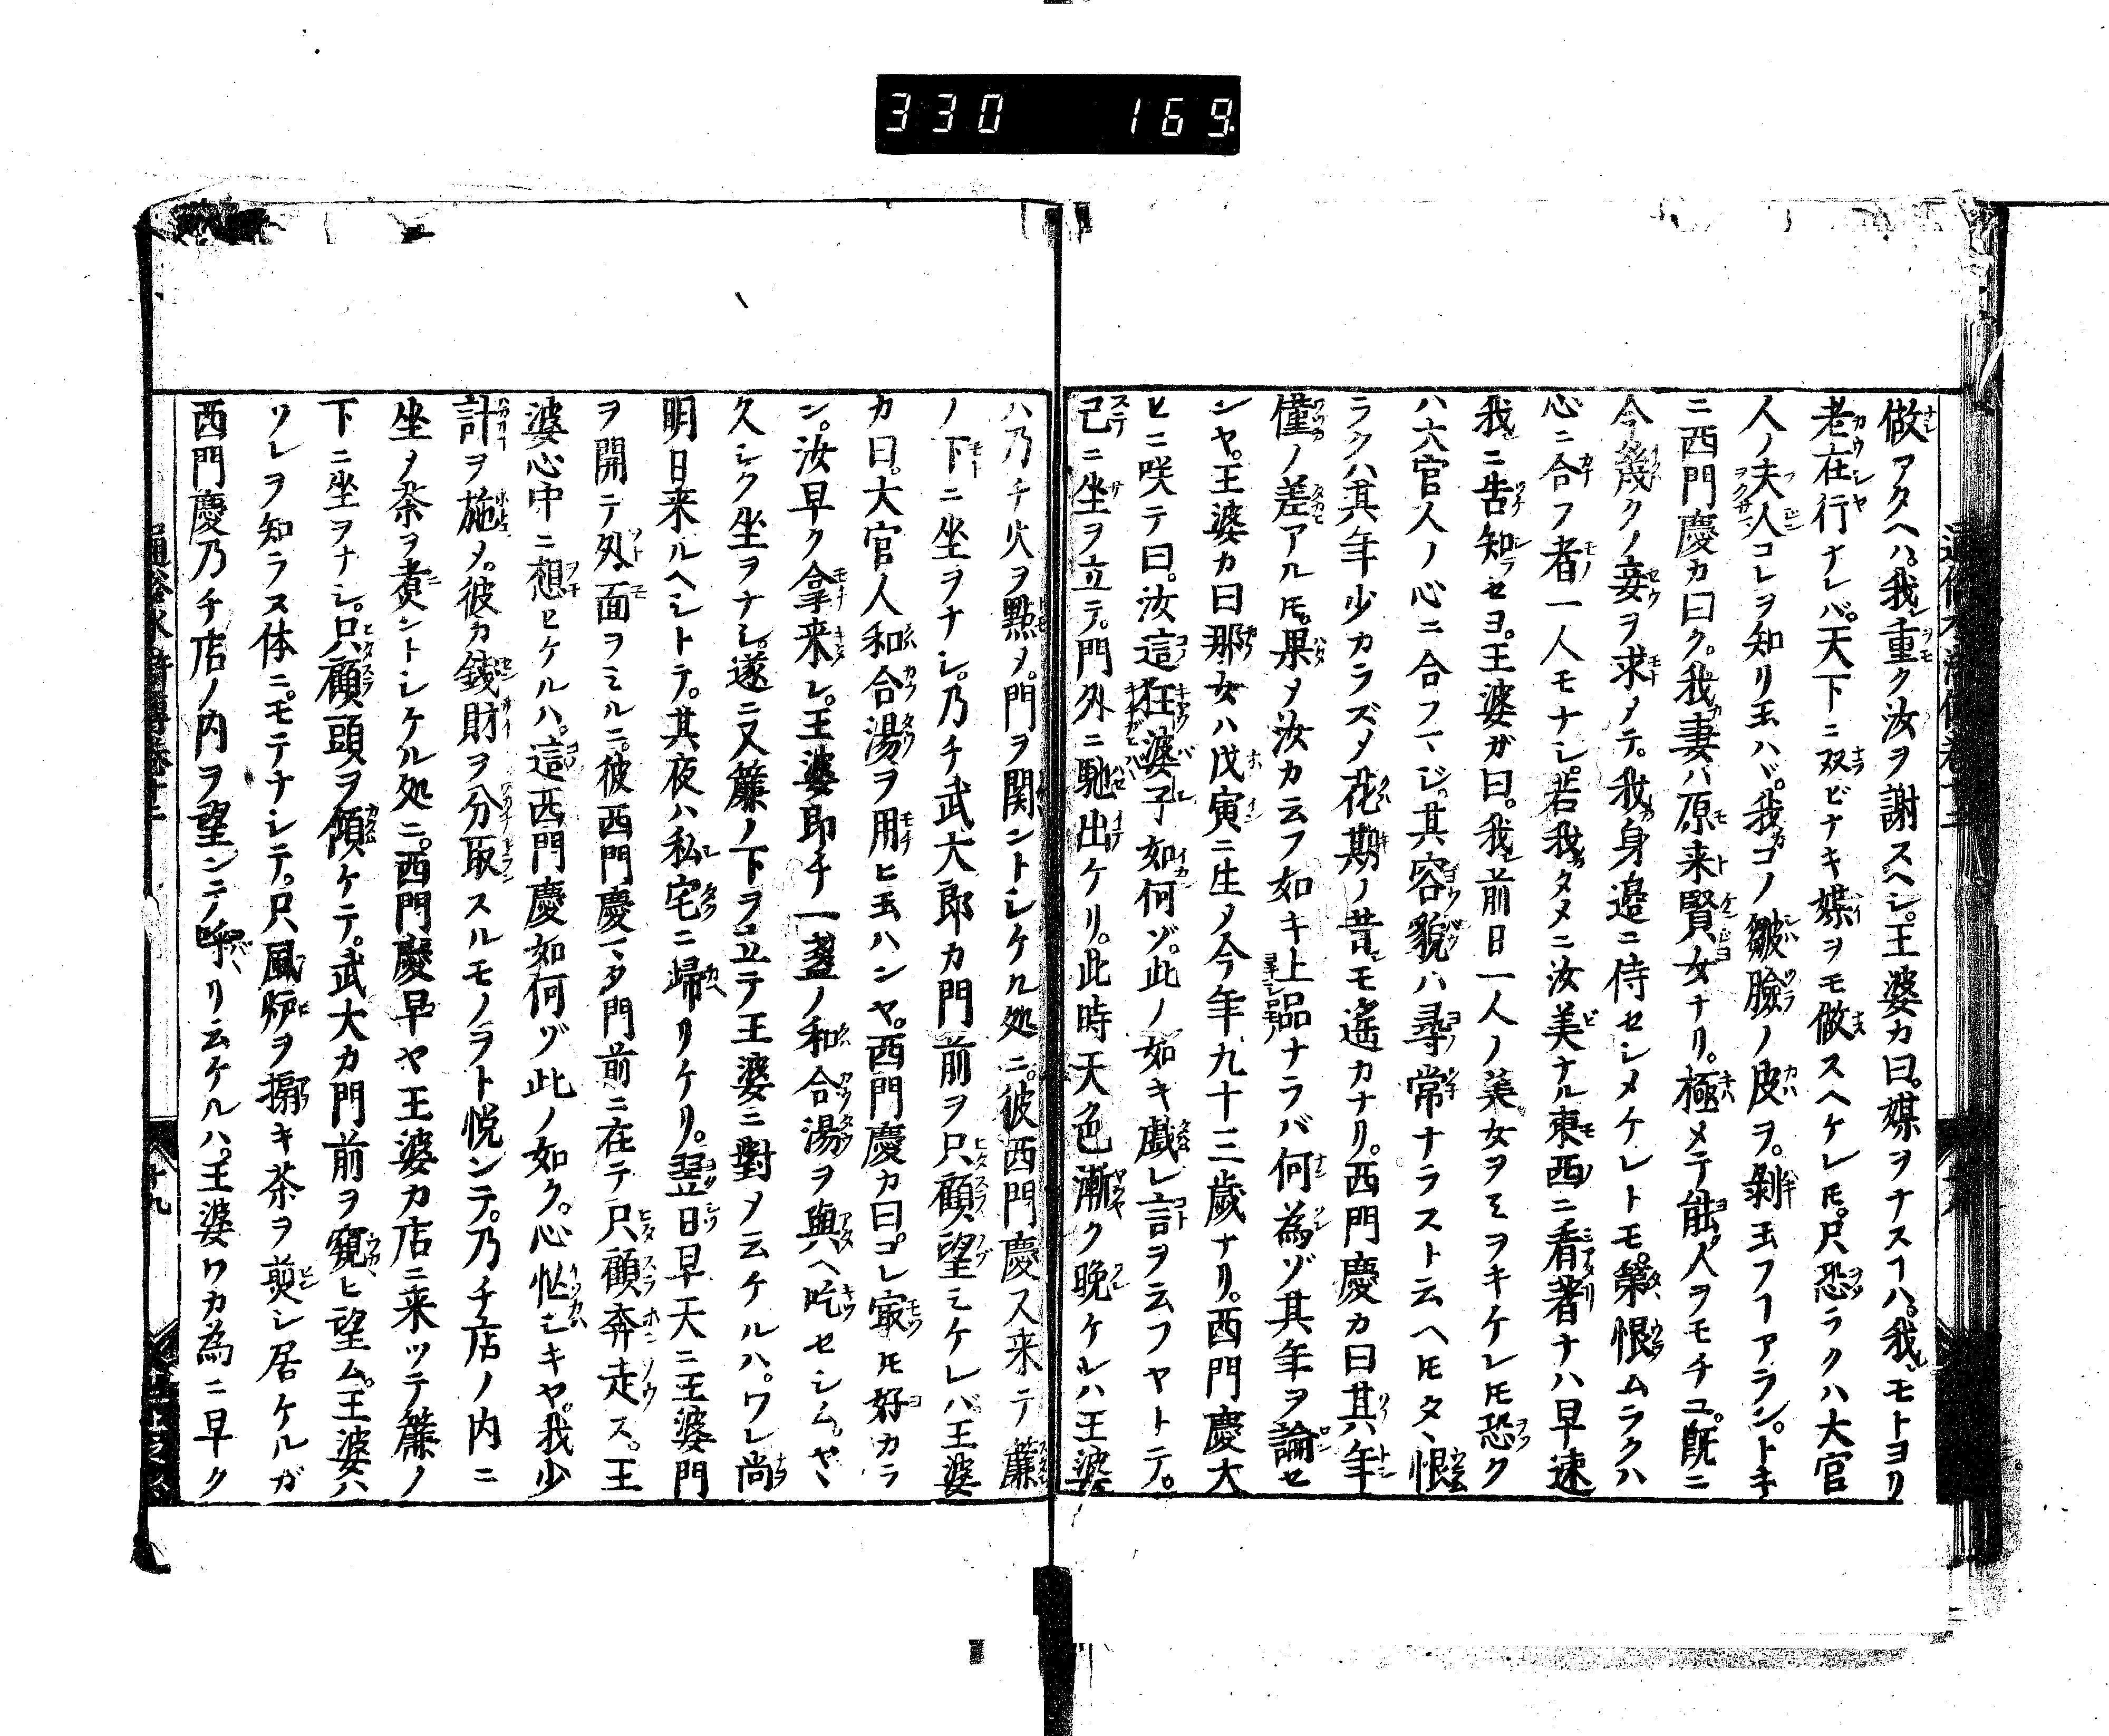 330 169.
做アタヘハ。我重ク汝ヲ謝スヘシ。王婆カ曰。媒ヲナスヿハ。我モトヨリ
老在行ナレバ。天下ニ双ビナキ媒ヲモ做スヘケレ𪜈。只恐ラクハ大官
人ノ夫人コレヲ知リ玉ハヾ。我コノ皺臉ノ皮ヲ。剝玉フヿアラン。トキ
ニ西門慶カ曰ク。我妻ハ原来賢女ナリ。極メテ能人ヲモチユ。既ニ
今幾クノ妾ヲ求メテ。我身邉ニ侍セシメケレトモ。第恨ムラクハ
心ニ合フ者一人モナシ。若我タメニ汝美ナル東西ニ看著ナハ早速
我ニ告知セヨ。王婆ガ曰。我前日一人ノ美女ヲミヲキケレ𪜈恐ク
ハ大官人ノ心ニ合フマジ。其容貌ハ尋常ナラスト云ヘ𪜈タヽ恨
ラクハ其年少カラズメ花期ノ昔モ遙カナリ。西門慶カ曰其年
僅ノ差アル𪜈。果メ汝カ云フ如キ上品ナラバ何為ゾ其年ヲ論セ
ンヤ。王婆カ曰那女ハ戊寅ニ生メ今年九十三歳ナリ。西門慶大
ヒニ咲テ曰。汝這狂婆子如何ゾ。此ノ如キ戯レ言ヲ云フヤトテ。
已ニ坐ヲ立テ。門外ニ馳出ケリ。此時天色漸ク晩ケレハ王婆
ハ乃チ火ヲ點メ。門ヲ関ントシケル処ニ。彼西門慶ス来テ簾
ノ下ニ坐ヲナシ。乃チ武大郎カ門前ヲ只顧望ミケレバ。王婆
カ曰。大官人和合湯ヲ用ヒ玉ハンヤ。西門慶カ曰コレ寂𪜈好カラ
ン。汝早ク拿来レ。王婆即チ一盞ノ和合湯ヲ與ヘ吃セシム。ヤヽ
久シク坐ヲナシ。遂ニ又簾ノ下ヲ立テ王婆ニ對メ云ケルハ。ワレ尚
明日来ルヘシトテ。其夜ハ私宅ニ歸リケリ。翌日早天ニ王婆門
ヲ開テ外面ヲミルニ。彼西門慶マタ門前ニ在テ只顧奔走ス。王
婆心中ニ想ヒケルハ。這西門慶如何ゾ此ノ如ク。心忙シキヤ。我少
計ヲ施メ。彼カ錢財ヲ分取スルモノヲト悦ンテ。乃チ店ノ内ニ
坐メ茶ヲ煑ントシケル処ニ。西門慶早ヤ王婆カ店ニ来ツテ簾ノ
下ニ坐ヲナシ。只顧頭ヲ傾ケテ。武大カ門前ヲ窺ヒ望ム。王婆ハ
ソレヲ知ラヌ体ニ。モテナシテ。只風炉ヲ搧キ茶ヲ煎シ居ケルガ
西門慶乃チ店ノ内ヲ望ンテ呼リ云ケルハ。王婆ワカ為ニ早ク
十九